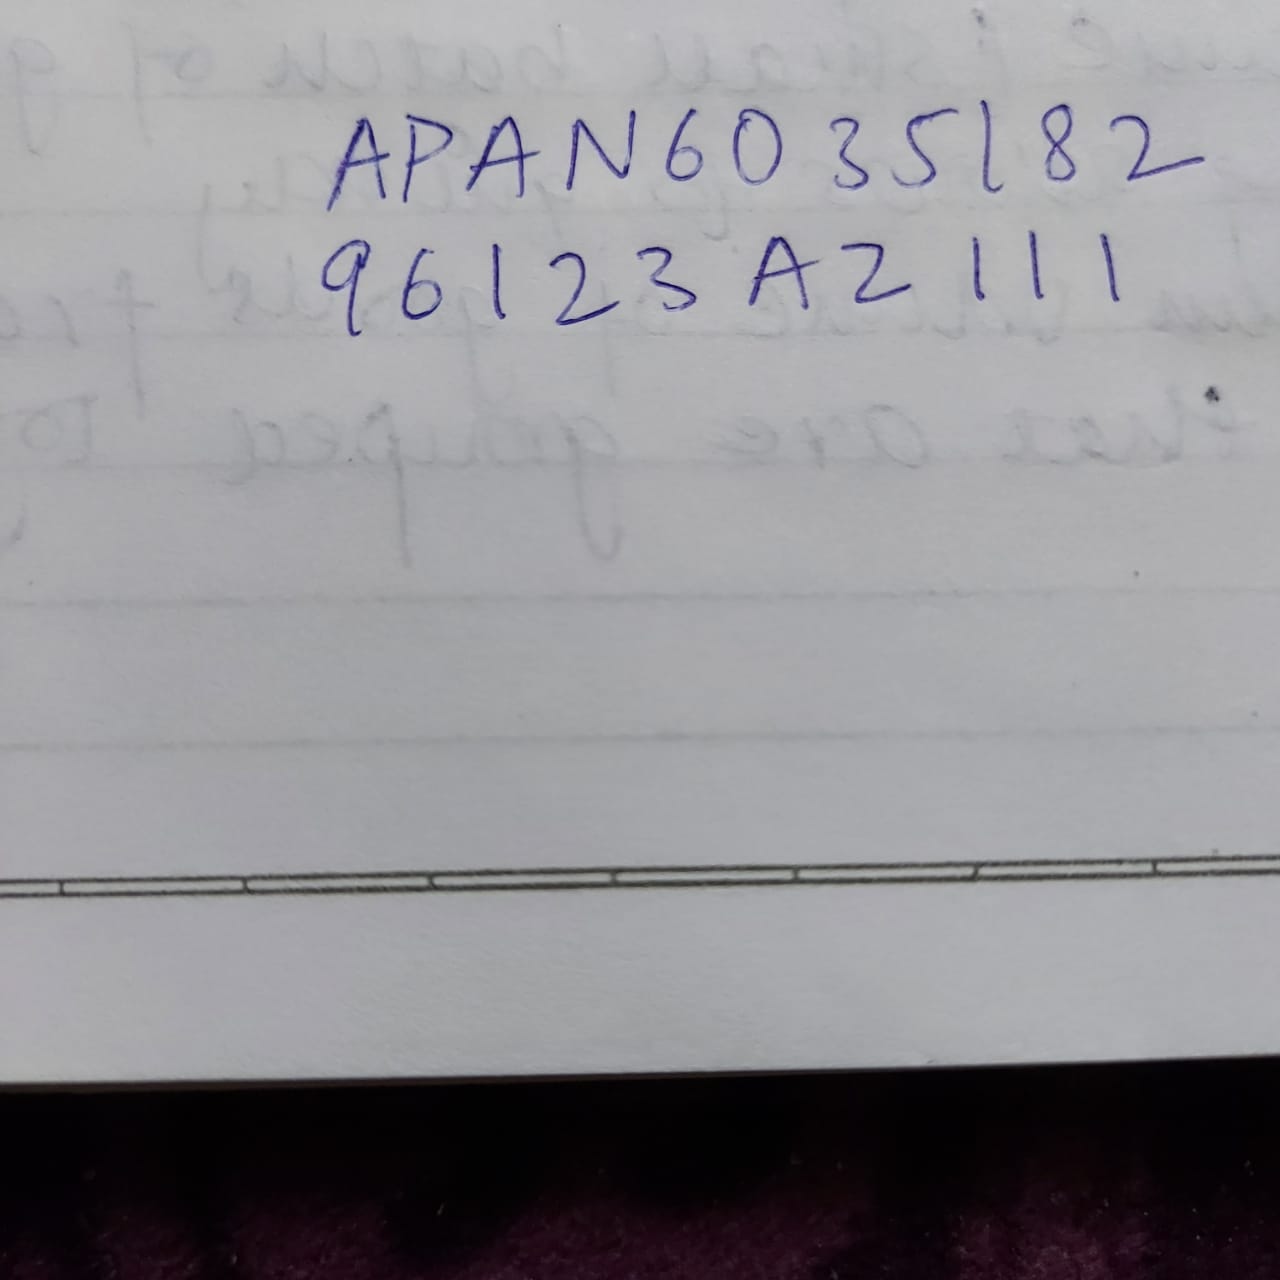 APAN6035182
96123AZ111